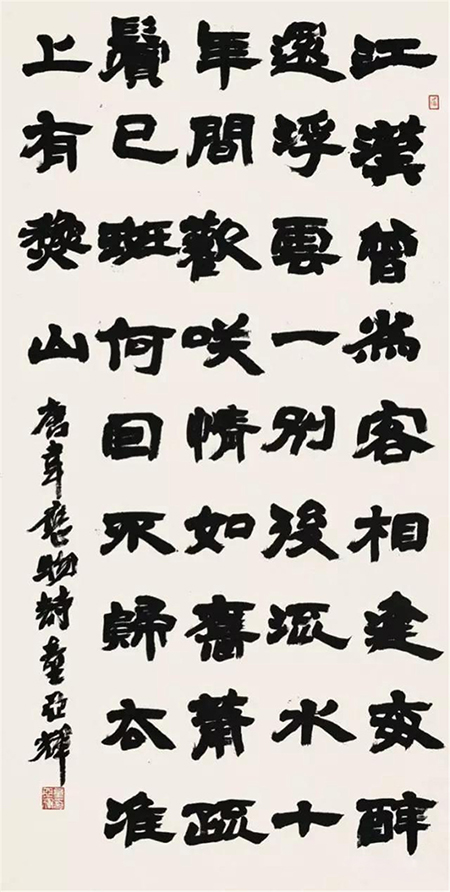 江漢曾為客相逢每醉
還浮雲一別後流水十
年間歡咲情如舊蕭疏
鬢已斑何囙不歸去淮
上有秋山 唐韋應物詩童亞輝